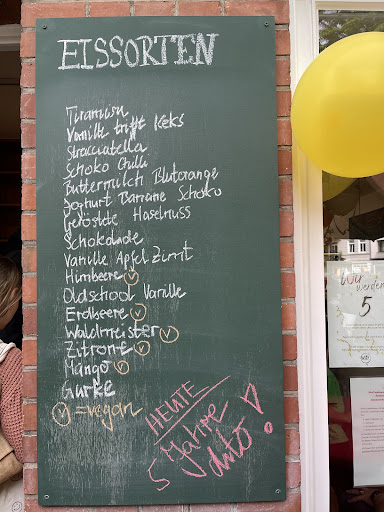 EISSORTEN
Tiramisu
Vanille trifft Keks
Stracciatella
Schoko Chilli
Buttermilch Blutorange
Joghurt Banane Schoko
Geröstete Haselnuss
Schokolade
Vanille Apfel Zimt
Himbeere V
Oldschool Vanille
Erdbeere V
Waldmeister V
Zitrone V
Mango V
Gurke
V = vegan
HEUTE
5 Jahre
!
Wir
werden
5